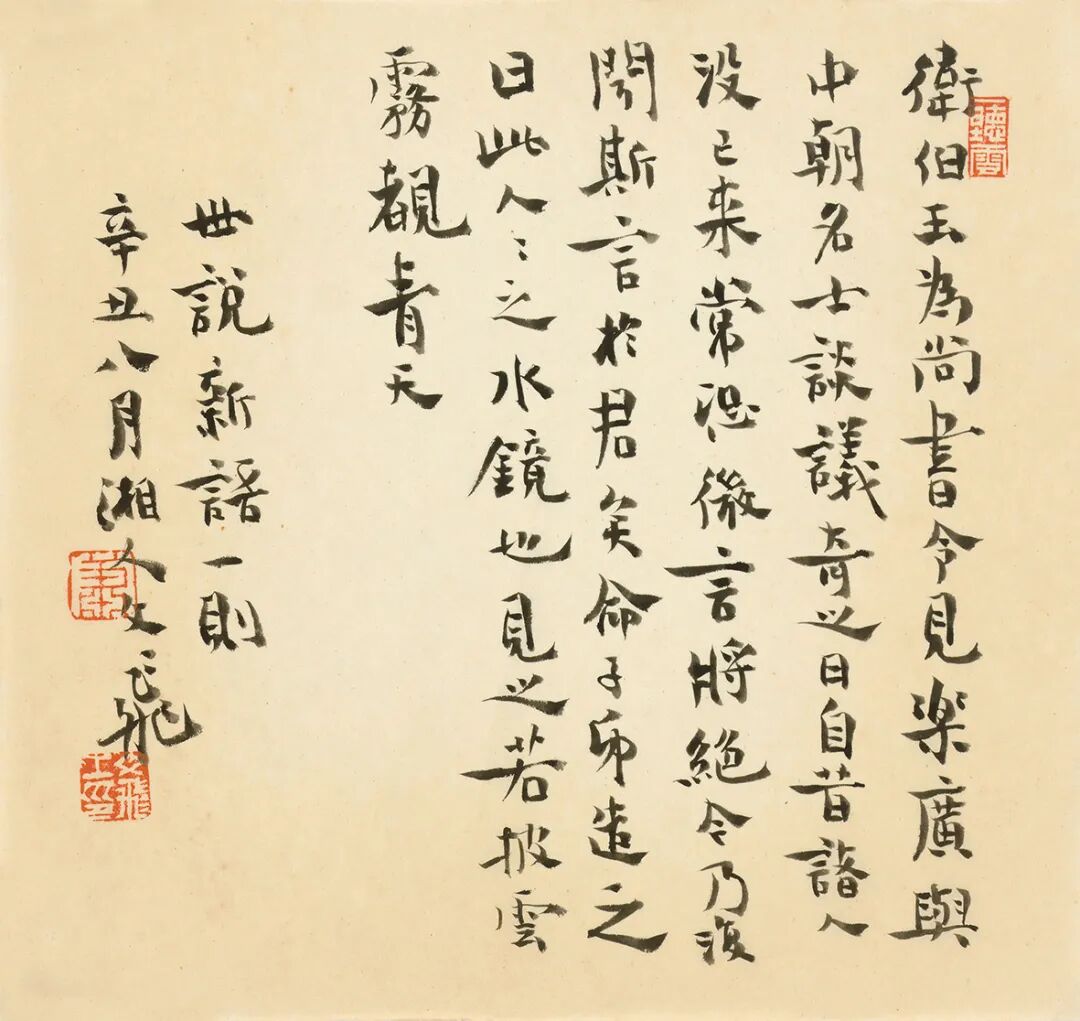 衛伯玉為尚書令見楽廣與
中朝名士談議奇之曰自昔諸人
没已来常恐微言將絶今乃復
聞斯言於君矣命子弟造之
曰此人〻之水鏡也見之若披雲
霧覩青天
世說新語一則
辛丑八月湘人文飛